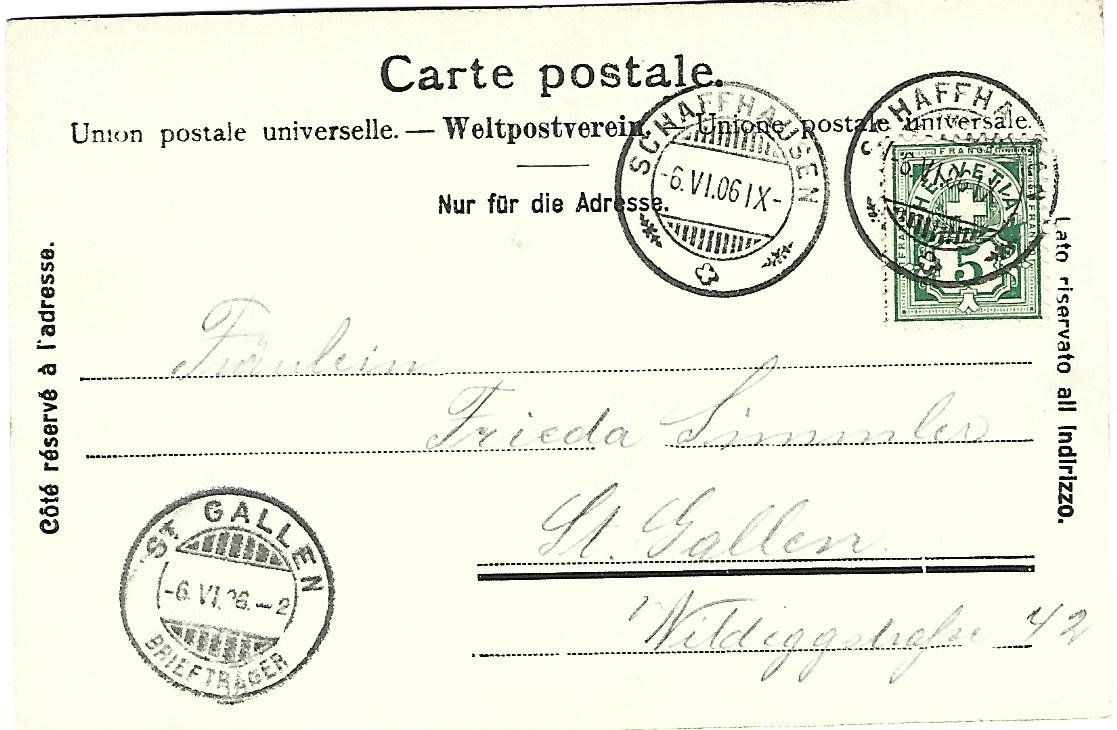 Carte postale.
Union postale universelle. — Weltpostverein. — Unione postale universale.
Nur für die Adresse.
SCHAFFHAUSEN
-6.VI.06 IX-
SCHAFFHAUSEN
FRANCO
HELVETIA
FRANCO
FRANCO
5
Côté réservé à l'adresse.
Lato riservato all Indirizzo.
Fräulein
Frieda Simmler
St. Gallen
Wildeggstraße 42
ST GALLEN
-6.VI.06.-2
BRIEFTRÄGER